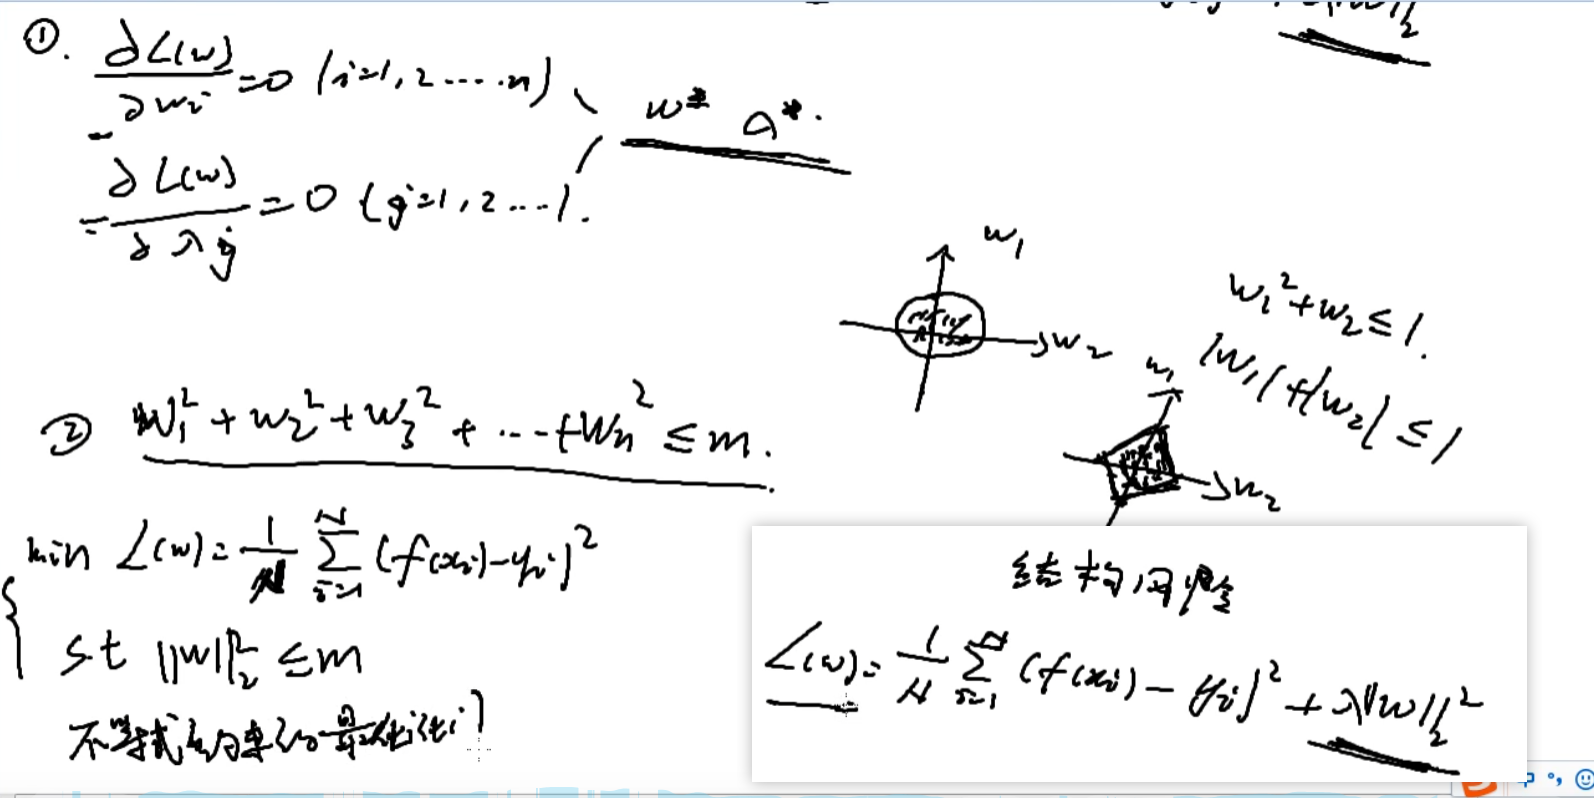 ①. ∂L(w)/∂wi =0 (i=1, 2 ····n)
w* a*.
∂L(w)/∂λj =0 (j=1, 2 ...).
w1
w2
w1²+w2≤1.
|w1|+|w2|≤1
w1
w2
② w1²+w2²+w3²+...+wn²≤m.
min L(w)=1/N Σ(i=1..N) (f(xi)-yi)²
s.t ||w||₂² ≤m
不等式约束的最优化
结构风险
L(w)=1/N Σ(i=1..N) (f(xi)-yi)²+λ||w||₂²
中